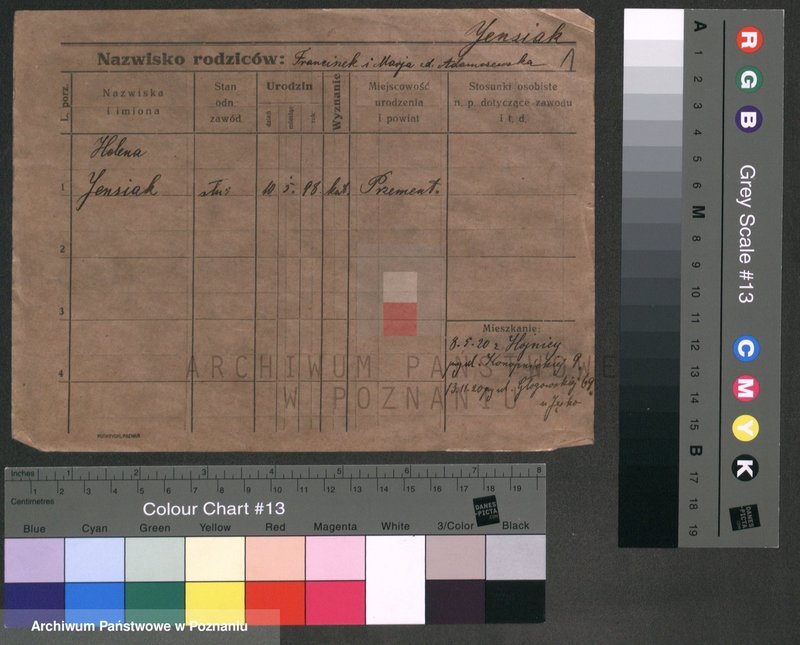 Jensiak
Nazwisko rodziców: Franciszek i Marja d. Adamczewska
L. porz.
Nazwiska i imiona
Stan odn. zawód
Urodzin
dzień
miesiąc
rok
Wyznanie
Miejscowość urodzenia i powiat
Stosunki osobiste n. p. dotyczące zawodu i t. d.
Helena
1 Jensiak służ: 10 5. 98 kat. Przement.
2
3
Mieszkanie:
8.5.20 z
13.11.20
4
ARCHIWUM PAŃSTWOWE
W POZNANIU
Inches 1 2 3 4 5 6 7 8
1 2 3 4 5 6 7 8 9 10 11 12 13 14 15 16 17 18 19
Centimetres
Colour Chart #13
DANES-PICTA.COM
Blue Cyan Green Yellow Red Magenta White 3/Color Black
Archiwum Państwowe w Poznaniu
Grey Scale #13
A 1 2 3 4 5 6 M 8 9 10 11 12 13 14 15 B 17 18 19
R G B
C M Y K
DANES-PICTA.COM